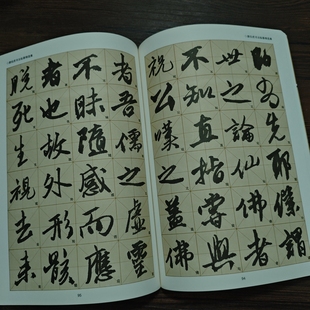 聃為先耶僕謂
世之論仙佛者
不知直指嘗與
祝公嘆之蓋佛
者吾儒之虛靈
不昧隨感而應
者也故外形骸
脫死生視去來